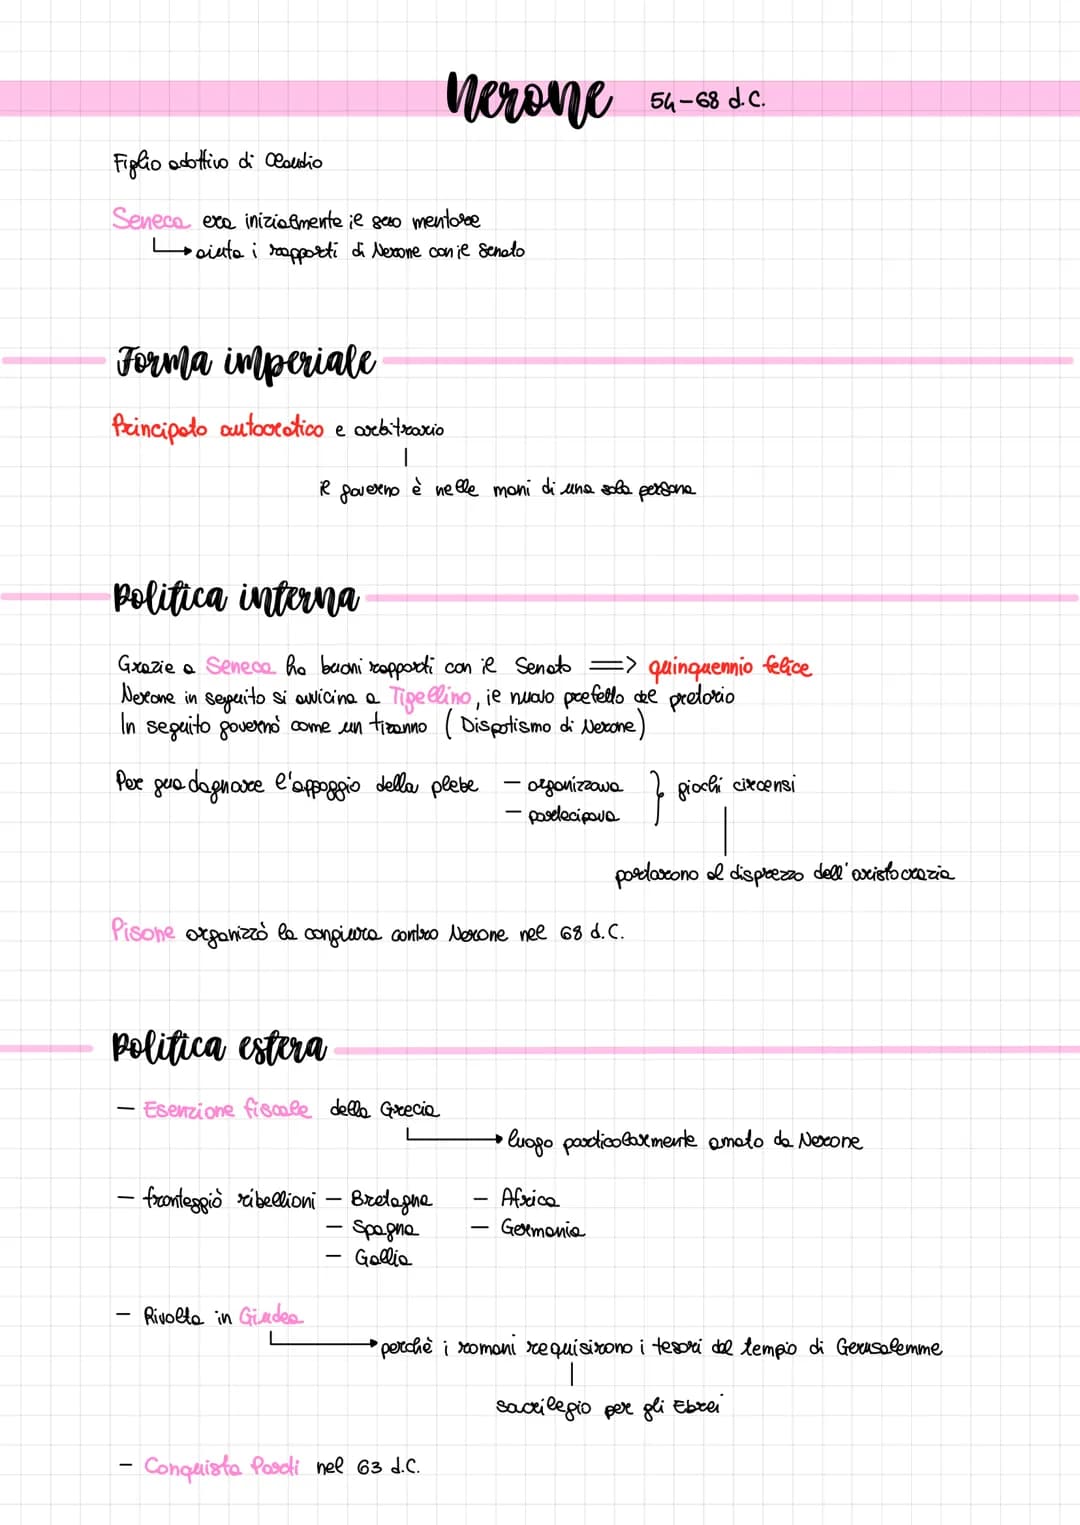 Nerone 54-68 d.C.
Figlio adottivo di Claudio
Seneca era inizialmente il suo mentore
aiuta i rapporti di Nerone con il Senato
Forma imperiale
Principato autocratico e arbitrario
Il governo è nelle mani di una sola persona
Politica interna
Grazie a Seneca ha buoni rapporti con il Senato => quinquennio felice
Nerone in seguito si avvicina a Tigellino, il nuovo prefetto del pretorio
In seguito governò come un tiranno (Dispotismo di Nerone)
Per guadagnare l'appoggio della plebe - organizzava } giochi circensi
- partecipava
portarono al disprezzo dell'aristocrazia
Pisone organizzò la congiura contro Nerone nel 68 d.C.
Politica estera
- Esenzione fiscale della Grecia
luogo particolarmente amato da Nerone
- fronteggiò ribellioni - Bretagna - Africa
- Spagna - Germania
- Gallia
- Rivolta in Giudea
perchè i romani requisirono i tesori dal tempio di Gerusalemme
sacrilegio per gli Ebrei
- Conquista Parti nel 63 d.C.